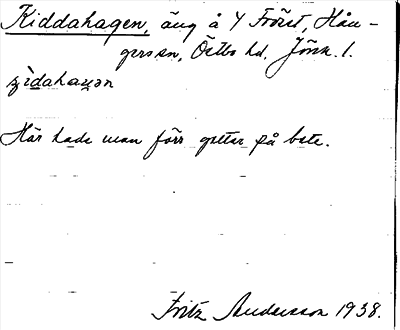 Kiddahagen, äng å Y Förest, Hån-
gersen, Östbo hd. Jönk. l.
Här hade man förr gettar på bete.
Fritz Andersson 1938.